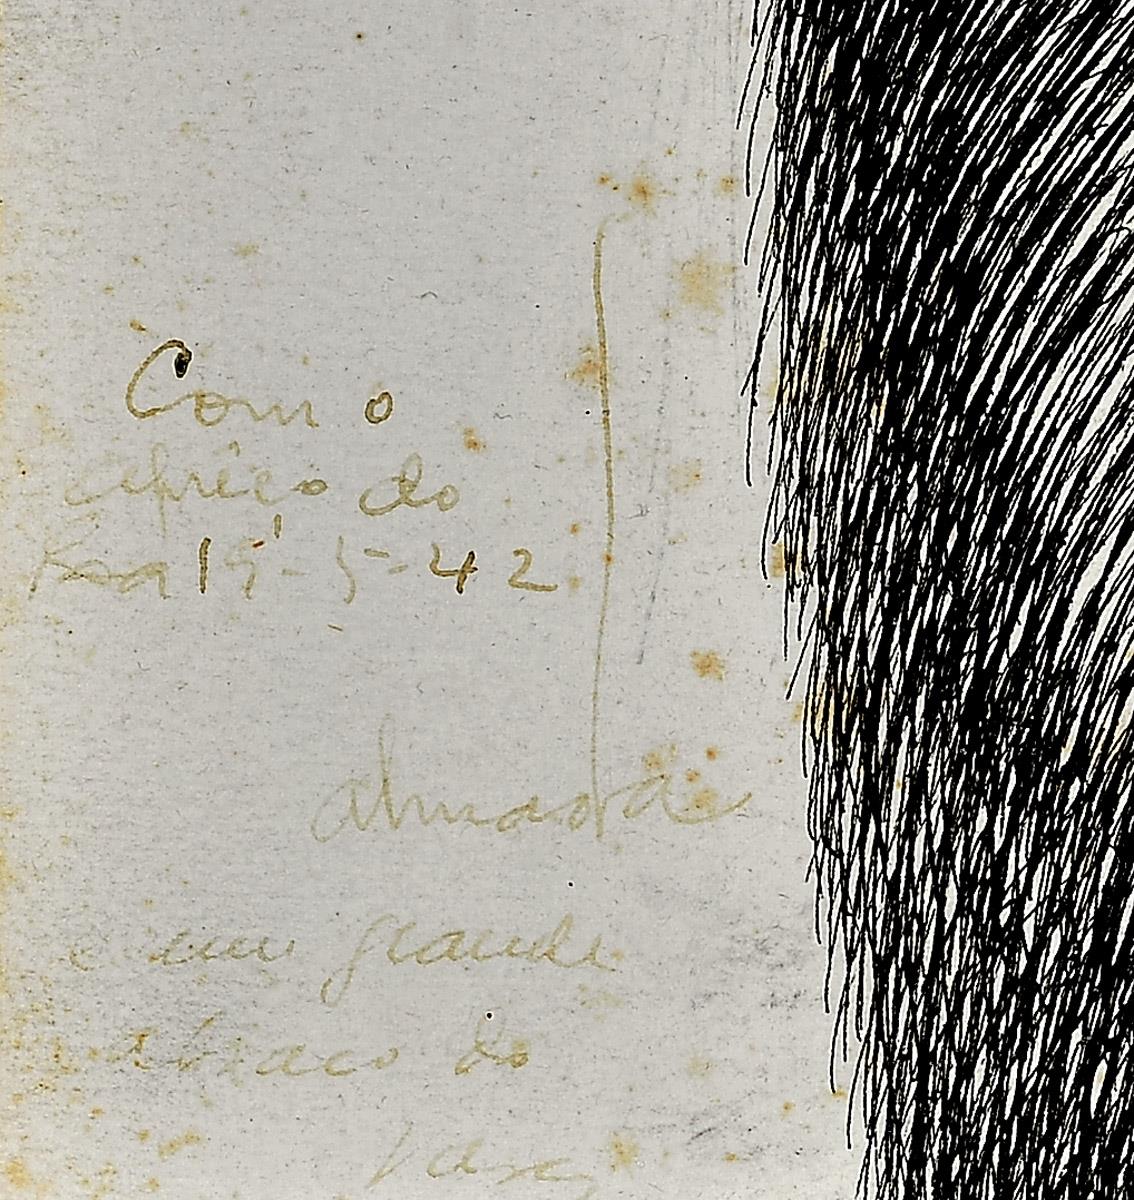 Com o
apreço do
15-5-42
almada
e um grande
abraço do